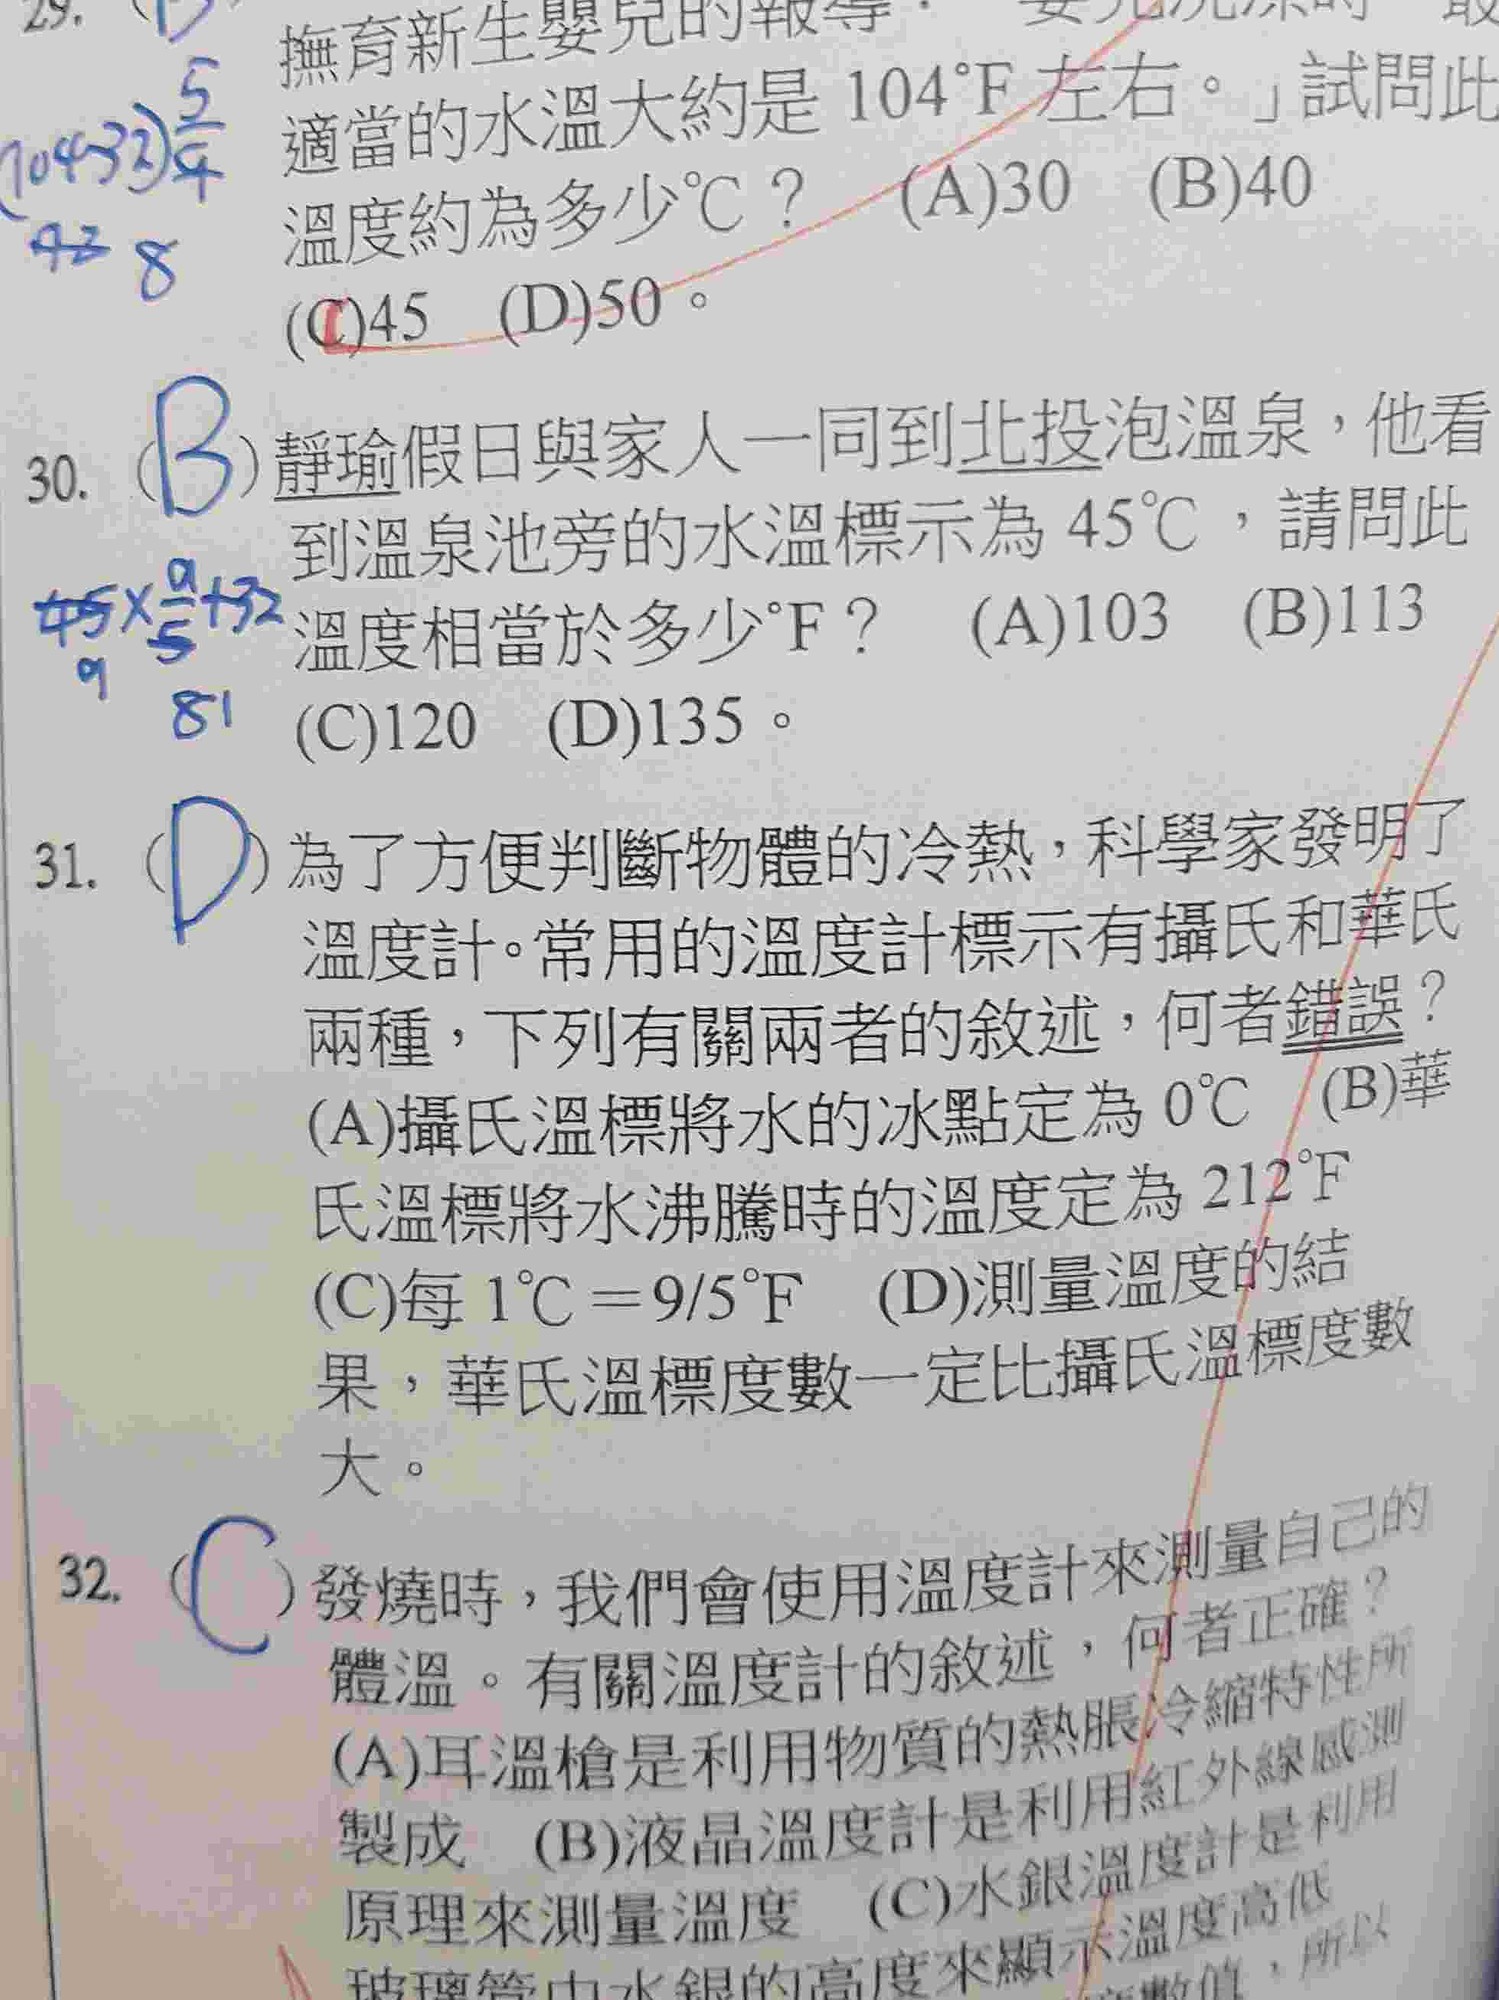 29.
撫育新生嬰兒的報導
適當的水溫大約是 104℉ 左右。」試問此
溫度約為多少℃? (A)30 (B)40
(C)45 (D)50。
(104-32)5/9
8
30. (B) 靜瑜假日與家人一同到北投泡溫泉，他看
到溫泉池旁的水溫標示為 45℃，請問此
溫度相當於多少℉? (A)103 (B)113
(C)120 (D)135。
45×9/5+32
9
81
31. (D) 為了方便判斷物體的冷熱，科學家發明了
溫度計。常用的溫度計標示有攝氏和華氏
兩種，下列有關兩者的敘述，何者錯誤?
(A)攝氏溫標將水的冰點定為 0℃ (B)華
氏溫標將水沸騰時的溫度定為 212℉
(C)每 1℃＝9/5℉ (D)測量溫度的結
果，華氏溫標度數一定比攝氏溫標度數
大。
32. (C) 發燒時，我們會使用溫度計來測量自己的
體溫。有關溫度計的敘述，何者正確?
(A)耳溫槍是利用物質的熱脹冷縮特性所
製成 (B)液晶溫度計是利用紅外線感測
原理來測量溫度 (C)水銀溫度計是利用
玻璃管中水銀的高度來顯示溫度高低
數值，所以